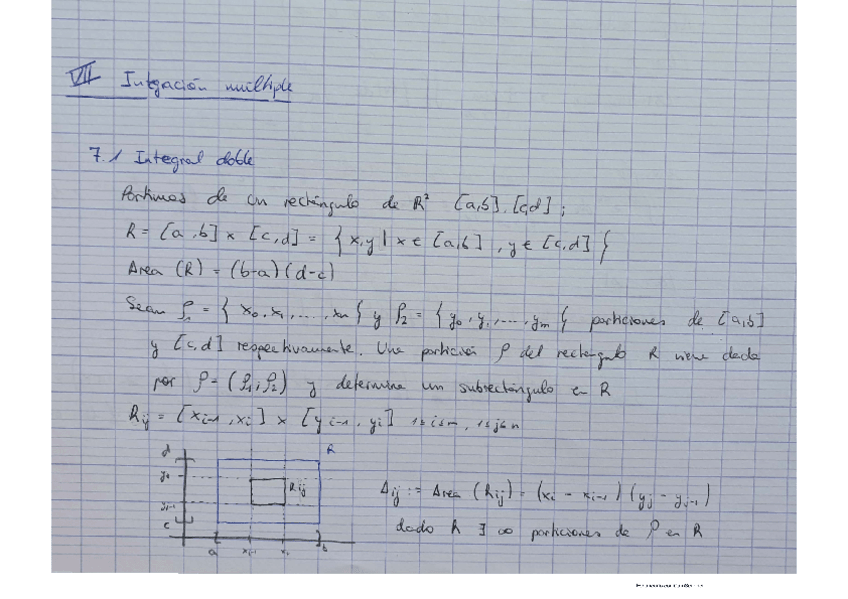 VII Integación múltiple
7.1 Integral doble
Partimos de un rectángulo de R² [a,b], [c,d];
R = [a,b] × [c,d] = { x,y | x ∈ [a,b], y ∈ [c,d] }
Area (R) = (b-a)(d-c)
Sean ρ₁ = { x₀, x₁, ..., xₙ } y ρ₂ = { y₀, y₁, ..., yₘ } particiones de [a,b]
y [c,d] respectivamente. Una partición ρ del rectángulo R viene dada
por ρ = (ρ₁, ρ₂) y determina un subrectángulo en R
Rij = [xi-1, xi] × [yi-1, yi] 1≤i≤m, 1≤j≤n
d
R
Rij
yj-1
c
a
xi-1
xi
b
Δij := Area (Rij) = (xi - xi-1)(yj - yj-1)
dado R ∃ ∞ particiones de ρ en R